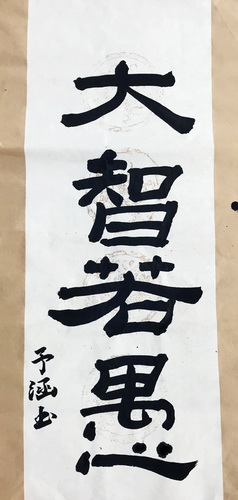 大智若愚
予涵书